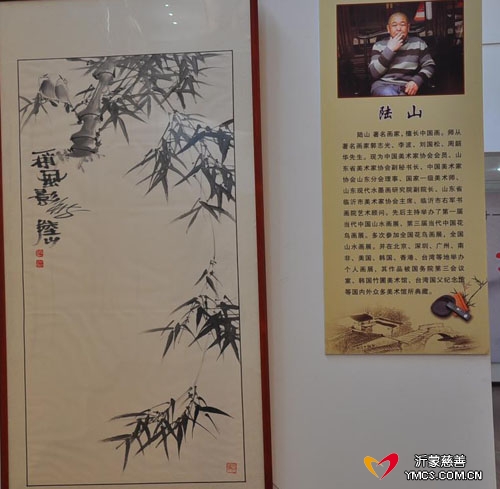 陆山
陆山 著名画家,擅长中国画。师从
著名画家郭志光、李波、刘国松、周韶
华先生。现为中国美术家协会会员、山
东省美术家协会副秘书长、中国美术家
协会山东分会理事、国家一级美术师、
山东现代水墨画研究院副院长、山东省
临沂市美术家协会主席、临沂市右军书
画院艺术顾问。先后主持举办了第一届
当代中国山水画展、第三届当代中国花
鸟画展,多次参加全国花鸟画展,全国
山水画展,并在北京、深圳、广州、南
非、美国、韩国、香港、台湾等地举办
个人画展,其作品被国务院第三会议
室、韩国竹圃美术馆、台湾国父纪念馆
等国内外众多美术馆所典藏。
沂蒙慈善
YMCS.COM.CN